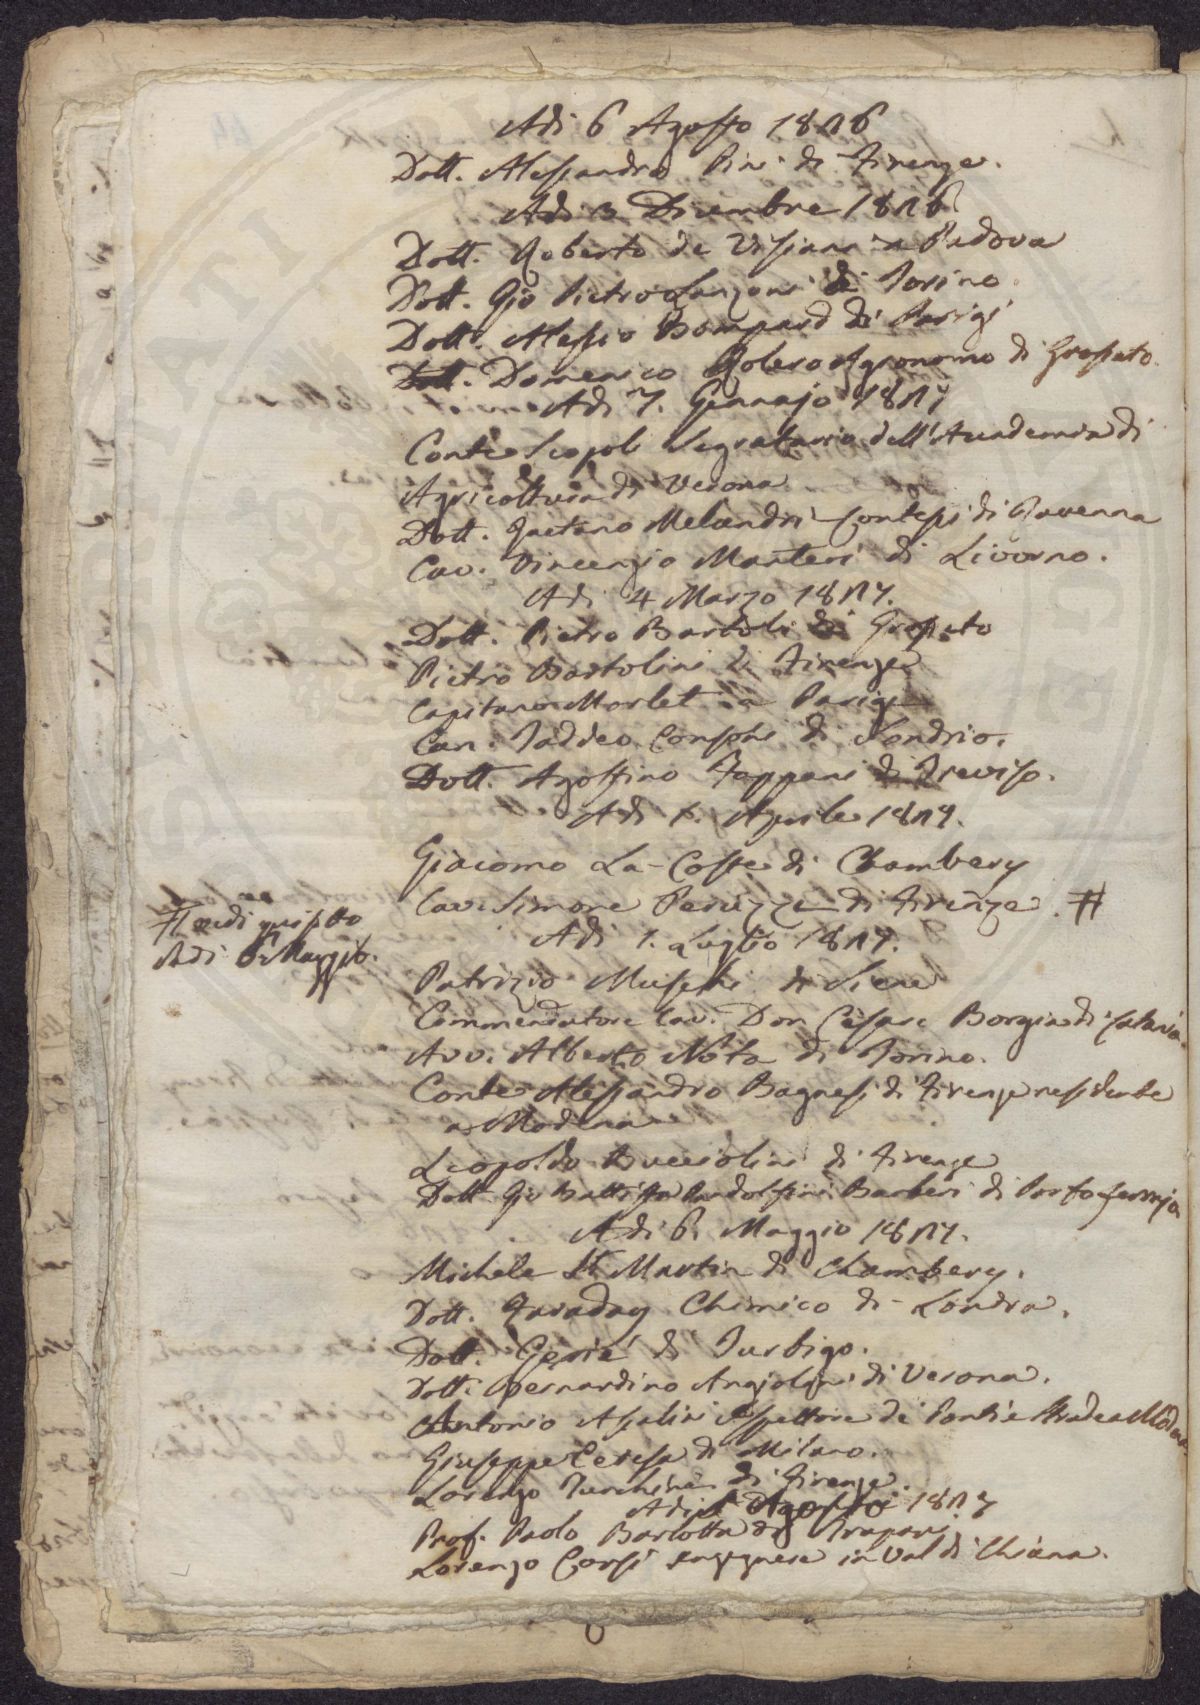 Adi 6 Agosto 1826
Dott. Alessandro Pini di Firenze.
Adi 3 Dicembre 1826
Dott. Roberto de Visiani a Padova
Dott. Gio Pietro Lanzoni di Torino.
Dott. Alessio Bompard di Parigi
Dott. Domenico Agronomo di Grosseto.
Adi 7. Gennajo 1827
Conte Scopoli Segretario dell'Accademia di
Agricoltura di Verona
Dott. Gaetano Melandri Contessi di Ravenna
Cav. Vincenzio Manteri di Livorno.
Adi 4 Marzo 1827.
Dott. Pietro Bartoli di Grosseto
Pietro Bartolini di Firenze
Capitano Morlet a Parigi
Can. Taddeo di Sondrio.
Dott. Agostino Fappani di Treviso.
Adi 1. Aprile 1827.
Giacomo La-Coste di Chambery
Cav. Simone Peruzzi di Firenze. #
# vedi quisotto
Adi 6. Maggio.
Adi 1. Luglio 1827.
Patrizio Museschi di Siena
Commendatore Cav. Don Cesare Borgia di Catania.
Avv. Alberto Nota di Torino.
Conte Alessandro Bagnesi di Firenze residente
a Modena
Leopoldo Bucciolini di Firenze
Dott. Gio Battista Pandolfini Barberi di Portoferrajo
Adi 6. Maggio 1827.
Michele St. Martin di Chambery.
Dott. Faraday Chimico di Londra.
Dott. di Turbigo.
Dott. Bernardino Angiolini di Verona.
Antonio Asalini Ispettore di Ponti e Strade a Modena
Giuseppe Ceresa di Milano.
Lorenzo Turchini di Firenze
Adi Agosto 1827
Prof. Paolo Barlotta di Trapani
Lorenzo Corsi Ingegnere in Val di Chiana.